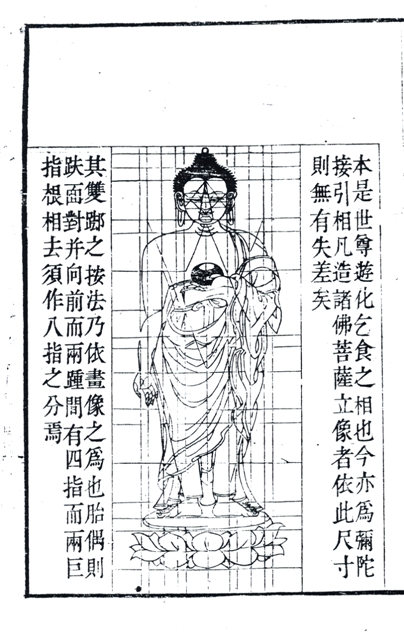 本是世尊遊化乞食之相也今亦爲彌陀
接引相凡造諸佛菩薩立像者依此尺寸
則無有失差矣
其雙跏之按法乃依畫像之爲也胎偶則
趺面對并向前而兩踵間有四指而兩巨
指根相去須作八指之分焉